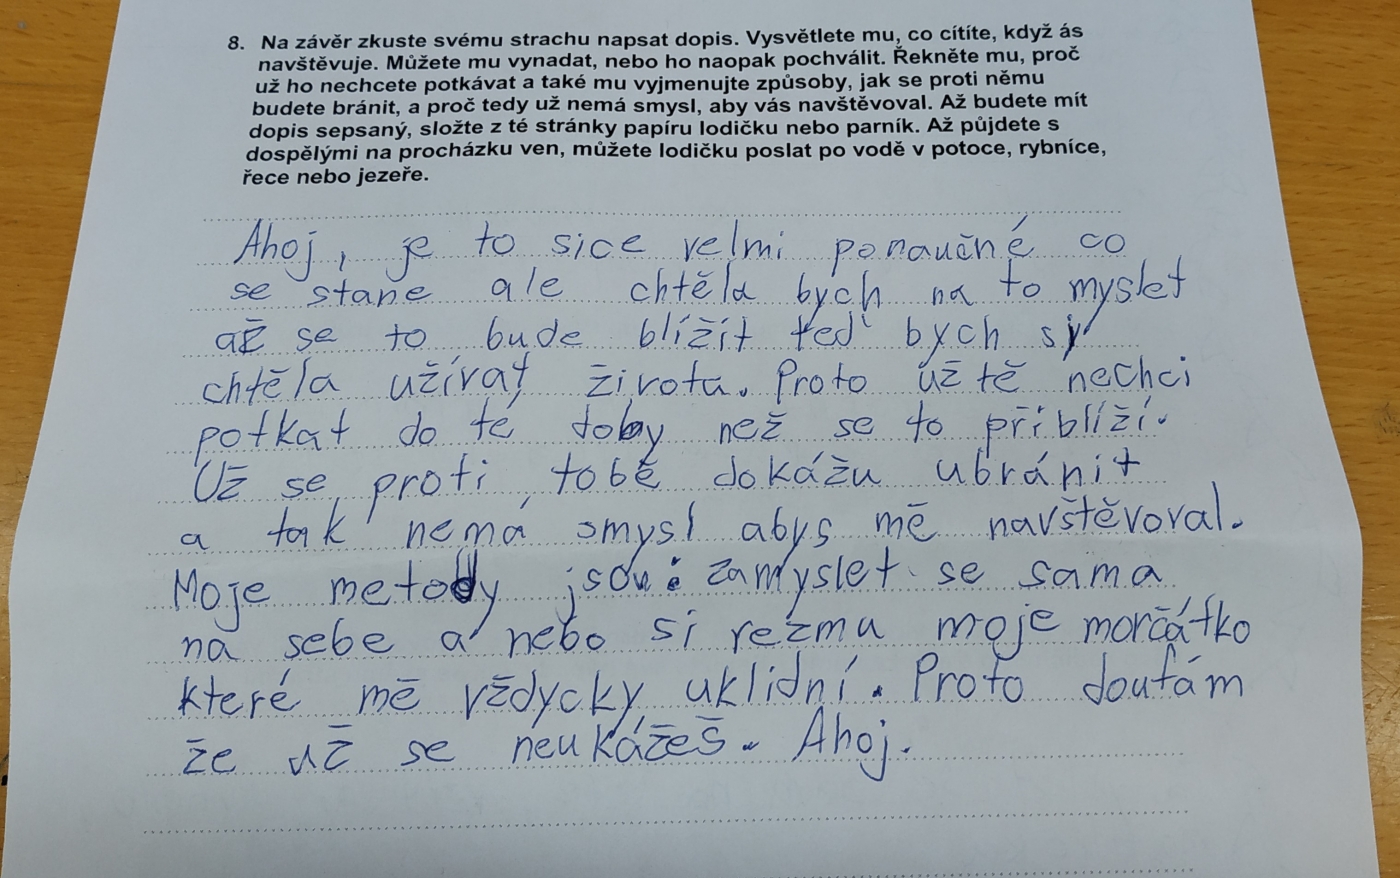 8. Na závěr zkuste svému strachu napsat dopis. Vysvětlete mu, co cítíte, když ás
navštěvuje. Můžete mu vynadat, nebo ho naopak pochválit. Řekněte mu, proč
už ho nechcete potkávat a také mu vyjmenujte způsoby, jak se proti němu
budete bránit, a proč tedy už nemá smysl, aby vás navštěvoval. Až budete mít
dopis sepsaný, složte z té stránky papíru lodičku nebo parník. Až půjdete s
dospělými na procházku ven, můžete lodičku poslat po vodě v potoce, rybníce,
řece nebo jezeře.
Ahoj, je to sice velmi ponaučné co
se stane ale chtěla bych na to myslet
až se to bude blížit teď bych si
chtěla užívat života. Proto už tě nechci
potkat do té doby než se to přiblíží.
Už se proti tobě dokážu ubránit
a tak nemá smysl abys mě navštěvoval.
Moje metody jsou: zamyslet se sama
na sebe a nebo si vezmu moje morčátko
které mě vždycky uklidní. Proto doufám
že už se neukážeš. Ahoj.